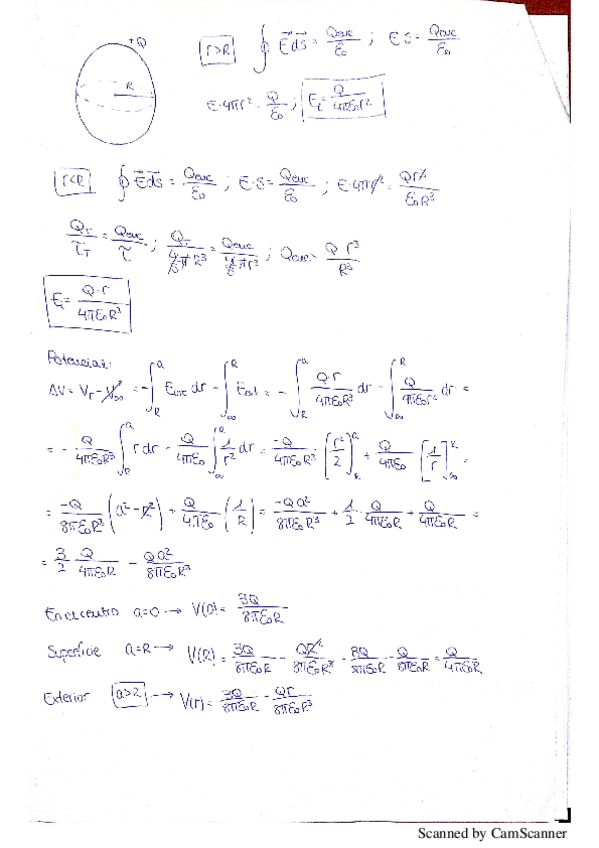 +Q
R
r>R ∮ E⃗ ds⃗ = Qenc/ε₀ ; E·S = Qenc/ε₀
E·4πr² = Q/ε₀ ; E = Q/4πε₀r²
r<R ∮ E⃗ ds⃗ = Qenc/ε₀ ; E·S = Qenc/ε₀ ; E·4πr² = Qr³/ε₀R³
Q_T/τ_T = Qenc/τ ; Q_T/(4/3 π R³) = Qenc/(4/3 π r³) ; Qenc = Q·r³/R³
E = Q·r/4πε₀R³
Potencial:
ΔV = V_r - V_∞ = -∫_R^a E_int dr - ∫_∞^R E_ext = -∫_R^a Q·r/4πε₀R³ dr - ∫_∞^R Q/4πε₀r² dr =
= - Q/4πε₀R³ ∫_R^a r dr - Q/4πε₀ ∫_∞^R 1/r² dr = -Q/4πε₀R³ · [r²/2]_R^a + Q/4πε₀ [1/r]_∞^R =
= -Q/8πε₀R³ (a² - R²) + Q/4πε₀ (1/R) = -Qa²/8πε₀R³ + 1/2 · Q/4πε₀R + Q/4πε₀R =
= 3/2 Q/4πε₀R - Qa²/8πε₀R³
En el centro a=0 → V(0) = 3Q/8πε₀R
Superficie a=R → V(R) = 3Q/8πε₀R - QR²/8πε₀R³ = 3Q/8πε₀R - Q/8πε₀R = Q/4πε₀R
Exterior → V(r) = 3Q/8πε₀R - Qr/8πε₀R³
Scanned by CamScanner